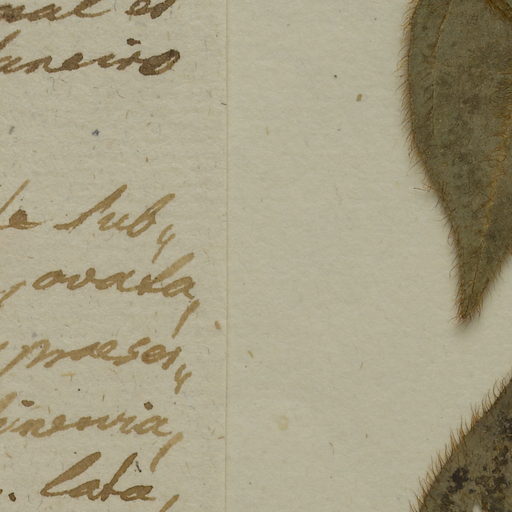 et
Janeiro
le sub,,
ovata,
praeser,,
linervia,
lata,